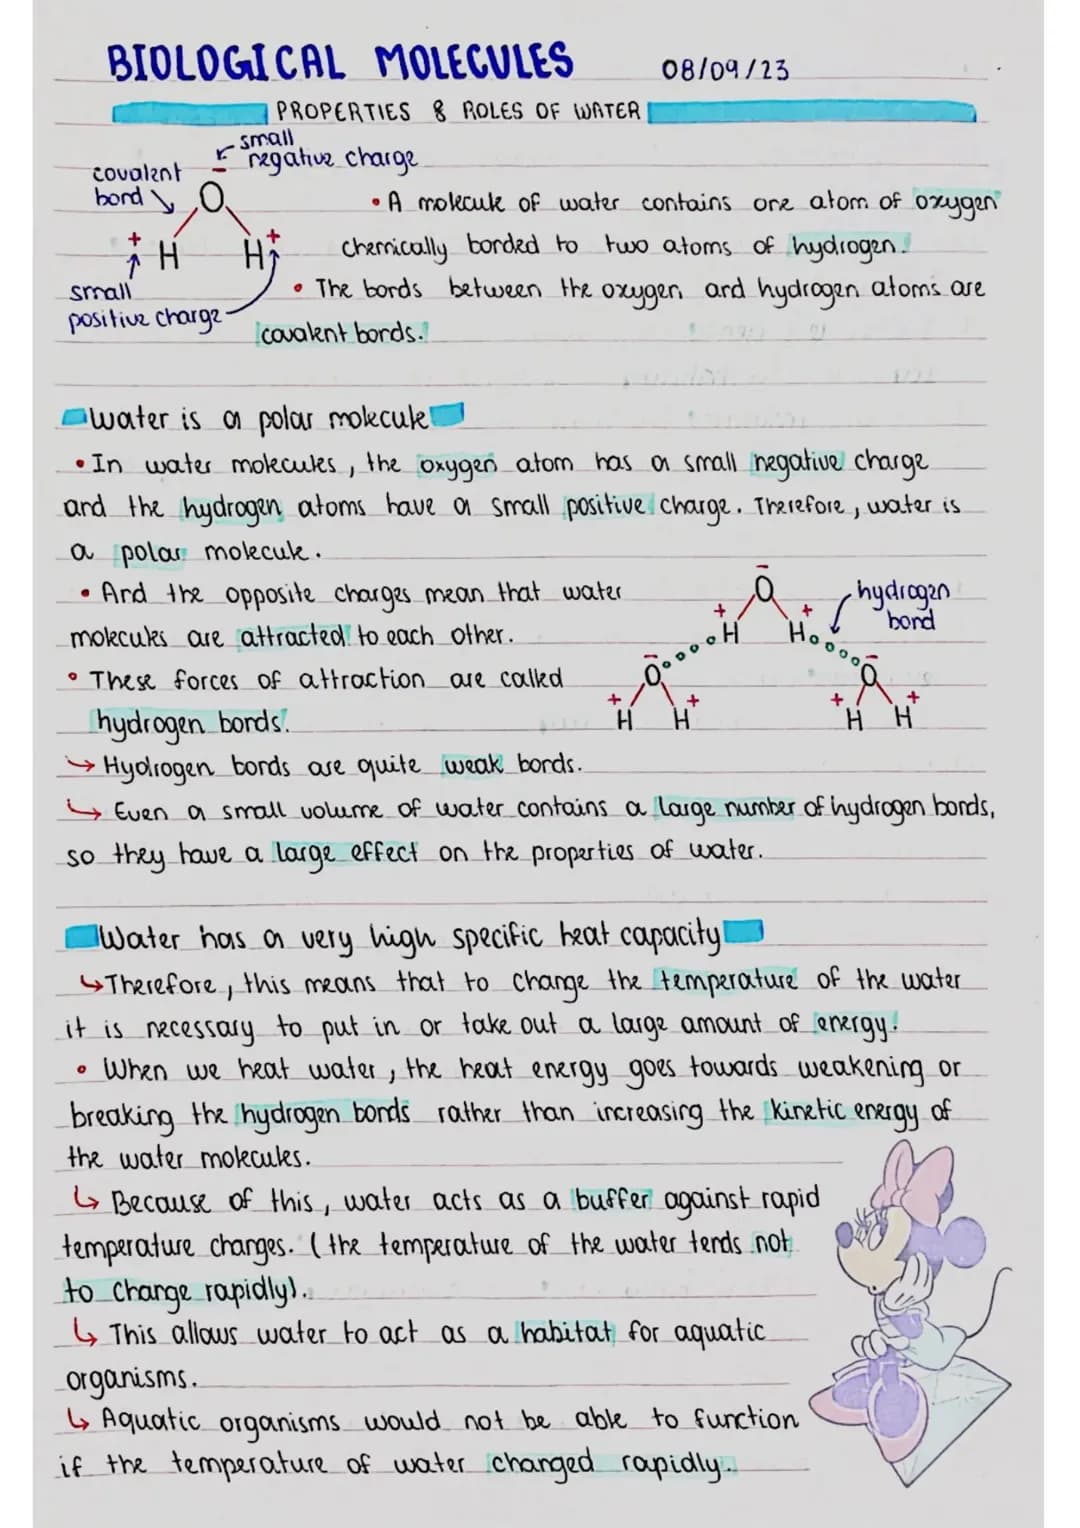 BIOLOGICAL MOLECULES 08/09/23
PROPERTIES & ROLES OF WATER
small
negative charge
covalent
bond
O
H H
+ +
-
small
positive charge
• A molecule of water contains one atom of oxygen
chemically bonded to two atoms of hydrogen.
• The bonds between the oxygen and hydrogen atoms are
covalent bonds.
Water is a polar molecule
• In water molecules, the oxygen atom has a small negative charge
and the hydrogen atoms have a small positive charge. Therefore, water is
a polar molecule.
• And the opposite charges mean that water
molecules are attracted to each other.
• These forces of attraction are called
hydrogen bonds.
hydrogen
bond
- O
+ H H +
- O - O
+ H H + + H H +
↳ Hydrogen bonds are quite weak bonds.
↳ Even a small volume of water contains a large number of hydrogen bonds,
so they have a large effect on the properties of water.
Water has a very high specific heat capacity
↳ Therefore, this means that to change the temperature of the water
it is necessary to put in or take out a large amount of energy.
• When we heat water, the heat energy goes towards weakening or
breaking the hydrogen bonds rather than increasing the kinetic energy of
the water molecules.
↳ Because of this, water acts as a buffer against rapid
temperature changes. (the temperature of the water tends not
to change rapidly).
↳ This allows water to act as a habitat for aquatic
organisms.
↳ Aquatic organisms would not be able to function
if the temperature of water changed rapidly.